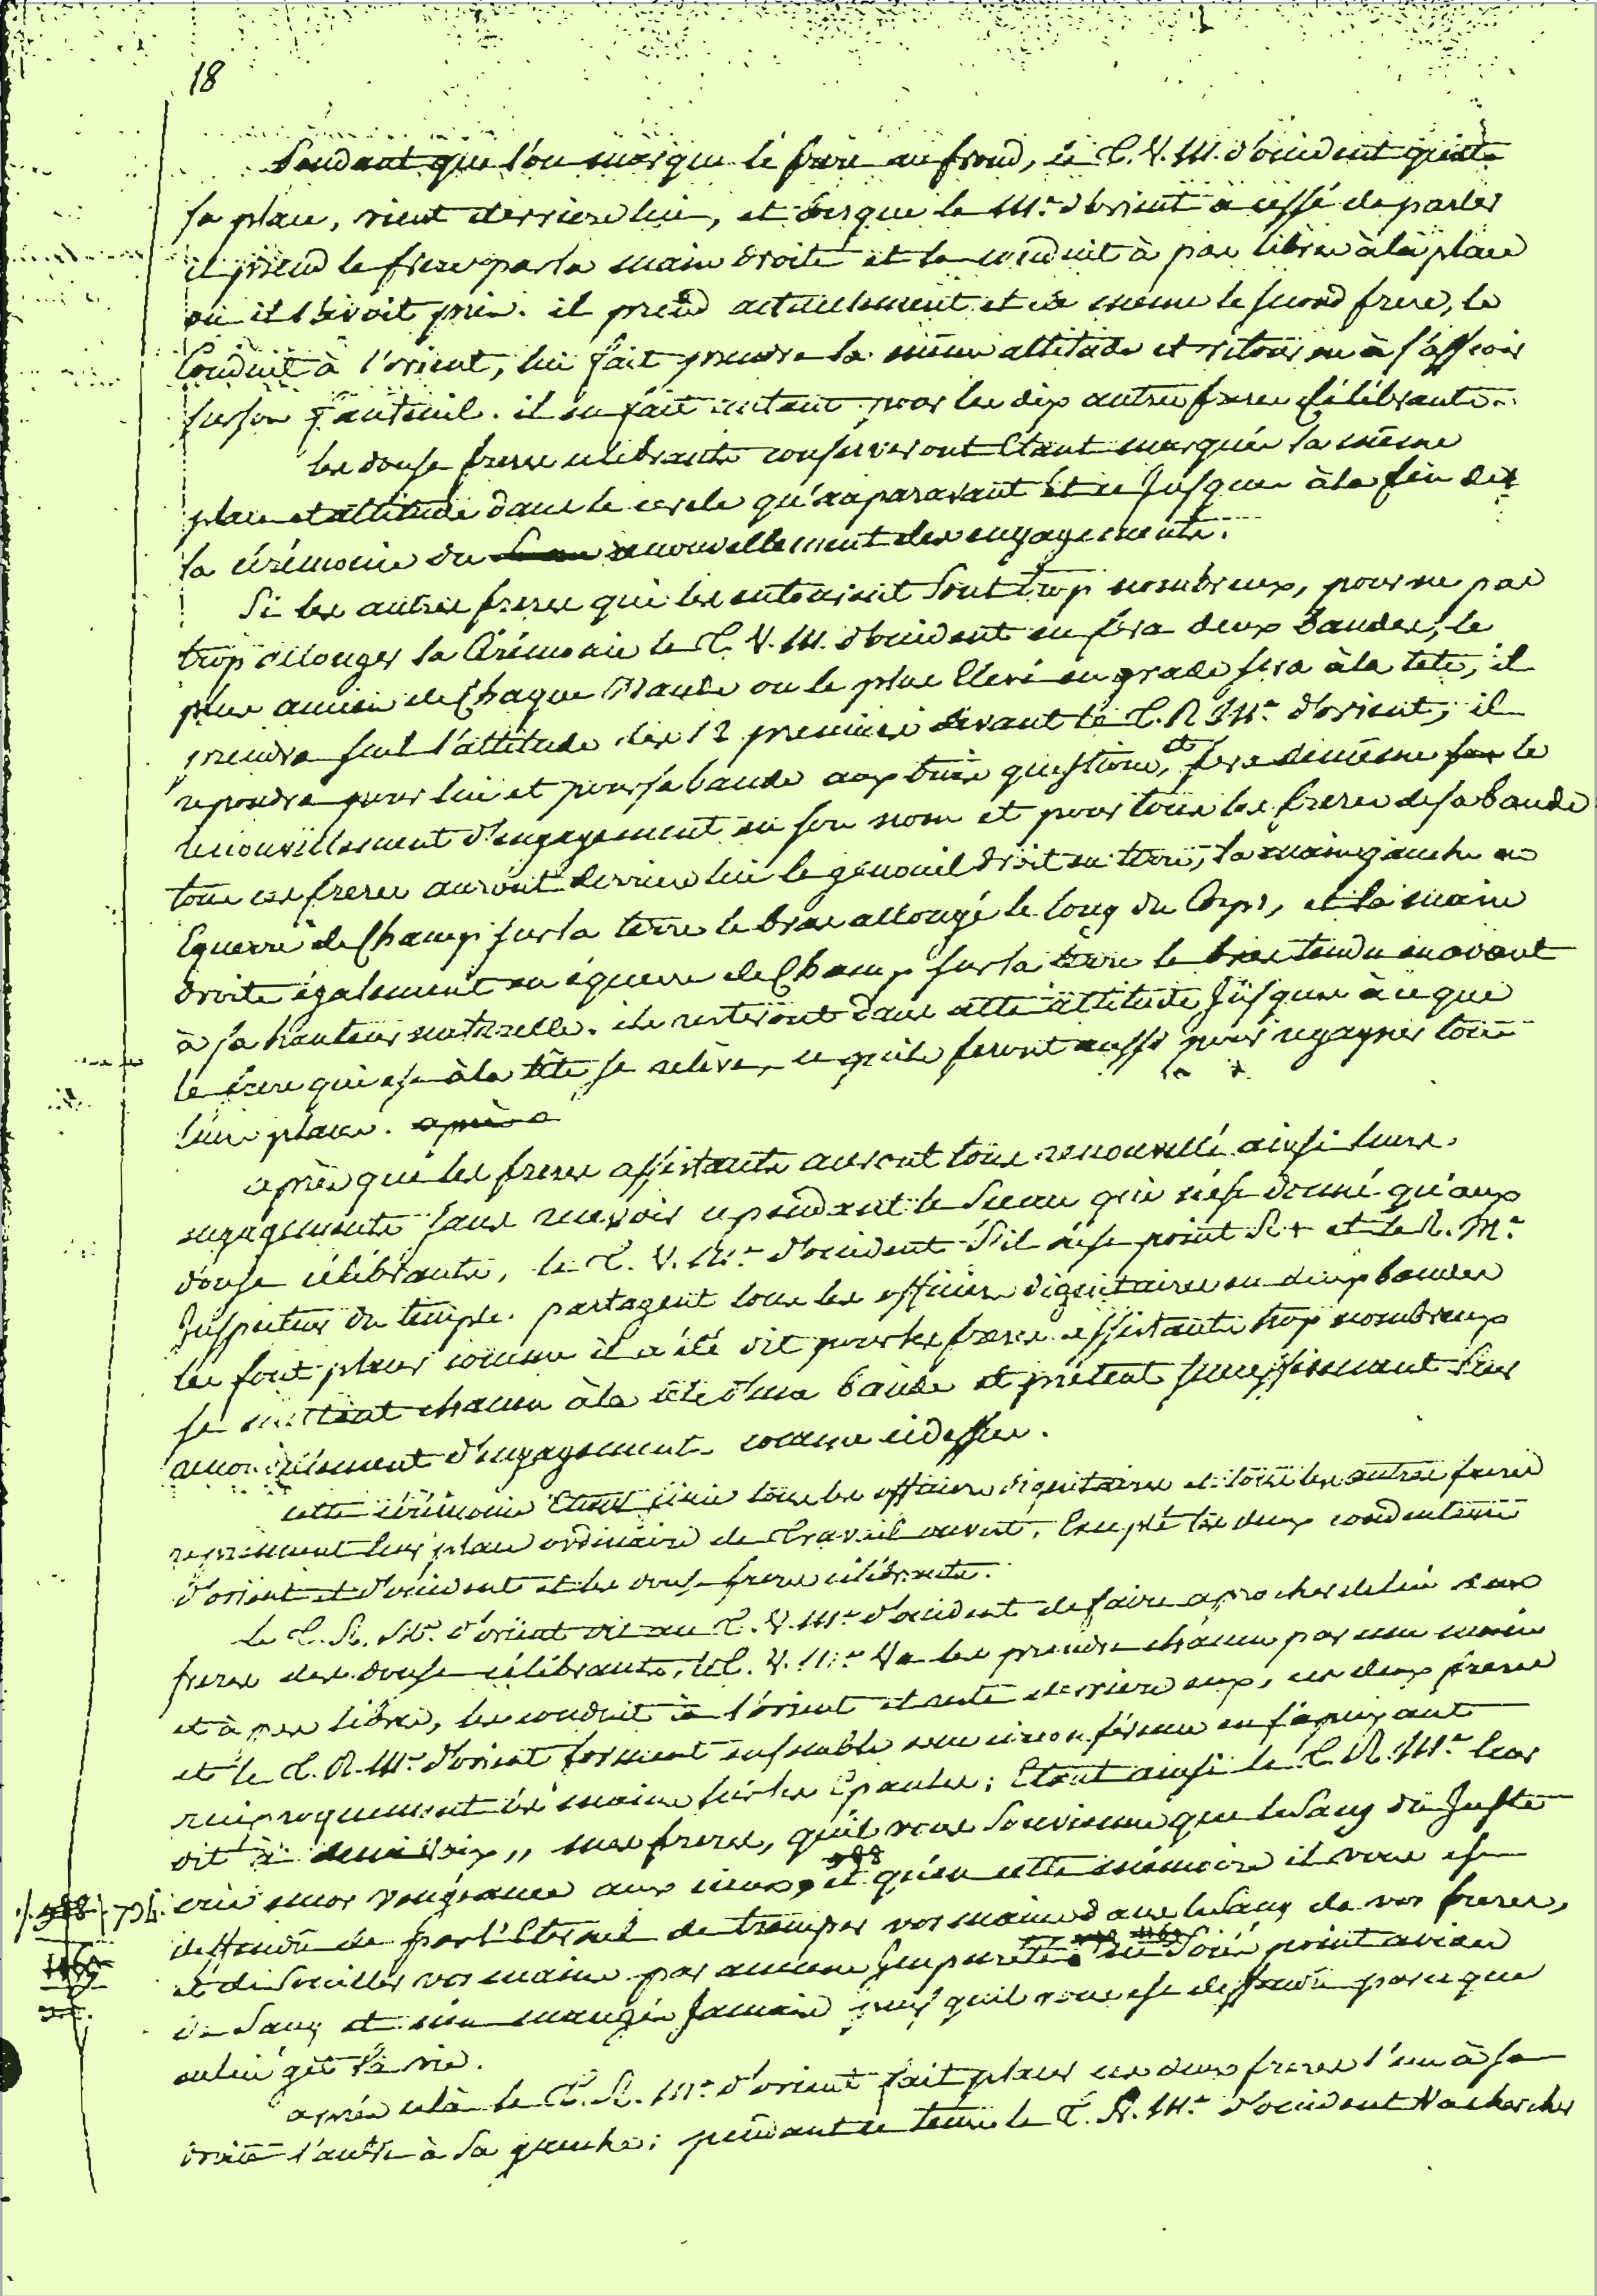 18
Pendant que l'on marque le frere au frond, le T. V. M. d'occident quitte
sa place, vient derriere lui, et lorsque le Mr. d'orient a cessé de parler
il prend le frere par la main droite et le conduit à pas libres à la place
où il l'avoit pris. il prend actuellement et de meme le second frere, le
Conduit à l'orient, lui fait prendre la même attitude et retourne à s'asseoir
sur son fauteuil. il en fait autant pour les dix autres freres célébrants.
les douse freres célébrants conserveront Etant marqués la même
place et attitude dans le cercle qu'auparavant et ce Jusques à la fin de
la cérémonie du renouvellement des engagements.
Si les autres freres qui les entourent Sont trop nombreux, pour ne pas
trop allonger la Cérémonie le T. V. M. d'occident en fera deux bandes, le
plus ancien de Chaque Bande ou le plus Elevé en grade sera à la tete, il
prendra seul l'attitude des 12 premiers devant le T. R. Mr. d'orient, il
repondra pour lui et pour sa bande aux trois questions, et fera de même le
renouvellement d'engagement en son nom et pour tous les freres de sa bande
tous ces freres auront derriere lui le genouil droit en terre, la main gauche en
Equerre de Champ sur la terre le bras allongé le long du Corps, et la main
droite également en équerre de Champ sur la terre le bras tendu en avant
à sa hauteur naturelle. ils resteront dans cette attitude Jusques à ce que
le frere qui est à la tête se relève, ce qu'ils feront aussi pour regagner tous
leurs places. après
après que les freres assistants auront tous renouvellé ainsi leurs
engagements sans recevoir cependant le Sceau qui n'est donné qu'aux
douse célébrants, le T. V. Mr. d'occident s'il n'est point R+ et le R. Mr.
Inspecteur du temple. partagent tous les officiers dignitaires en deux bandes
les font placer comme il a été dit pour les freres assistants trop nombreux
se mettent chacun à la tête d'une bande et prêtent successivement leur
renouvellement d'engagement comme ci dessus.
cette cérémonie Etant finie tous les officiers dignitaires et tous les autres freres
reprennent leur place ordinaire de travail ouvert, Excepté les deux conducteurs
d'orient et d'occident et les douse freres célébrants.
le T. R. Mr. d'orient dit au T. V. Mr. d'occident de faire aprocher de lui deux
freres des douse célébrants, le T. V. Mr. Va les prendre chacun par une main
et à pas libres, les conduit à l'orient et reste derriere eux, ces deux freres
et le T. R. Mr. d'orient forment ensemble une circonférence en s'apuyant
réciproquement les mains sur les Epaules; Etant ainsi le T. R. Mr. leur
dit à demi voix ,, mes freres, qu'il vous souvienne que le Sang du Juste
crie encor vengeance aux cieux, et qu'en cette mémoire il vous est
deffendu de par l'Eternel de tremper vos mains dans le sang de vos freres,
et de souiller vos mains par aucune Impureté. ne soiés point avides
de Sang et n'en mangés Jamais puis qu'il vous est deffendu parce que
en lui gît la vie.
après cela le T. R. Mr. d'orient fait placer ces deux freres l'un à sa
droite l'autre à sa gauche; pendant ce tems le T. V. Mr. d'occident Va chercher